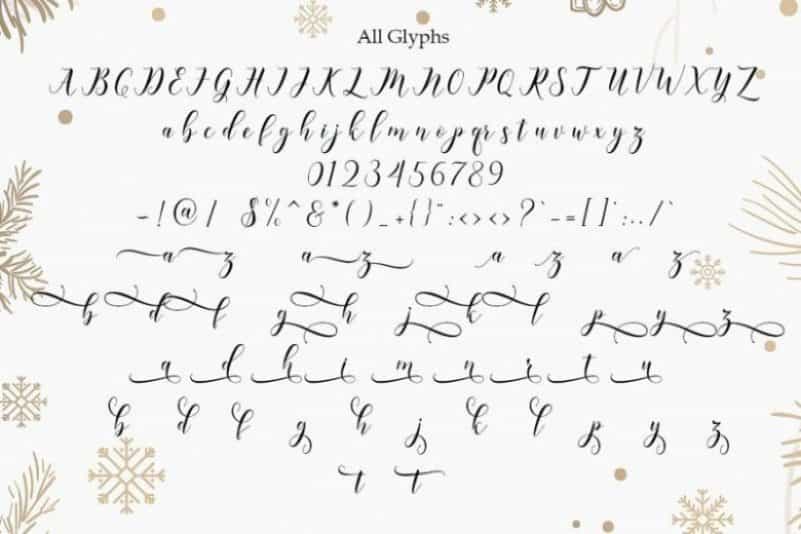 All Glyphs
A B C D E F G H I J K L M N O P Q R S T U V W X Y Z
a b c d e f g h i j k l m n o p q r s t u v w x y z
0 1 2 3 4 5 6 7 8 9
~ ! @ / $ % ^ & * ( ) _ + { } " : < > < > ? ` - = [ ] ` ; . . / `
a z a z a z a z
b d f g h j k l p y z
a d h i m n r t u
b d f g h j k l p y z
t t